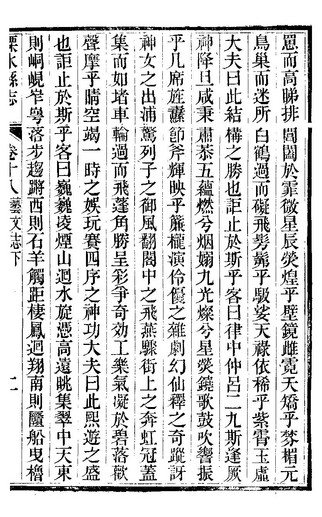 罳而高睇排閶闔於霏微星辰熒煌乎壁鏡雌霓夭矯乎棼楣元
鳥巢而迷所白鶴過而礙飛髣髴乎馺娑天祿依稀乎紫霄玉虛
大夫曰此結構之勝也詎止於斯乎客曰律中仲呂二九斯逢厥
神降旦咸秉肅恭五蘊燃兮烟嫋九光燦兮星熒鐃歌鼓吹響振
乎几席旌纛節斧輝映乎簾櫳演伶優之雜劇幻仙釋之奇蹤訝
神女之出浦驚列子之御風翻閣中之飛燕驟街上之奔虹冠蓋
集而如堵車輪過而飛蓬角勝呈彩爭奇効工樂氣凝於碧落歡
聲摩乎晴空竭一時之娛玩賽四序之神功大夫曰此熙遊之盛
也詎止於斯乎客曰巍巍崚煙山迴水旋憑高遠眺集翠中天東
則峒峴岝㟧落步趨路西則石羊觸距棲鳳迴翔南則贉船曳櫓
溧水縣志 卷十八藝文志下 十二